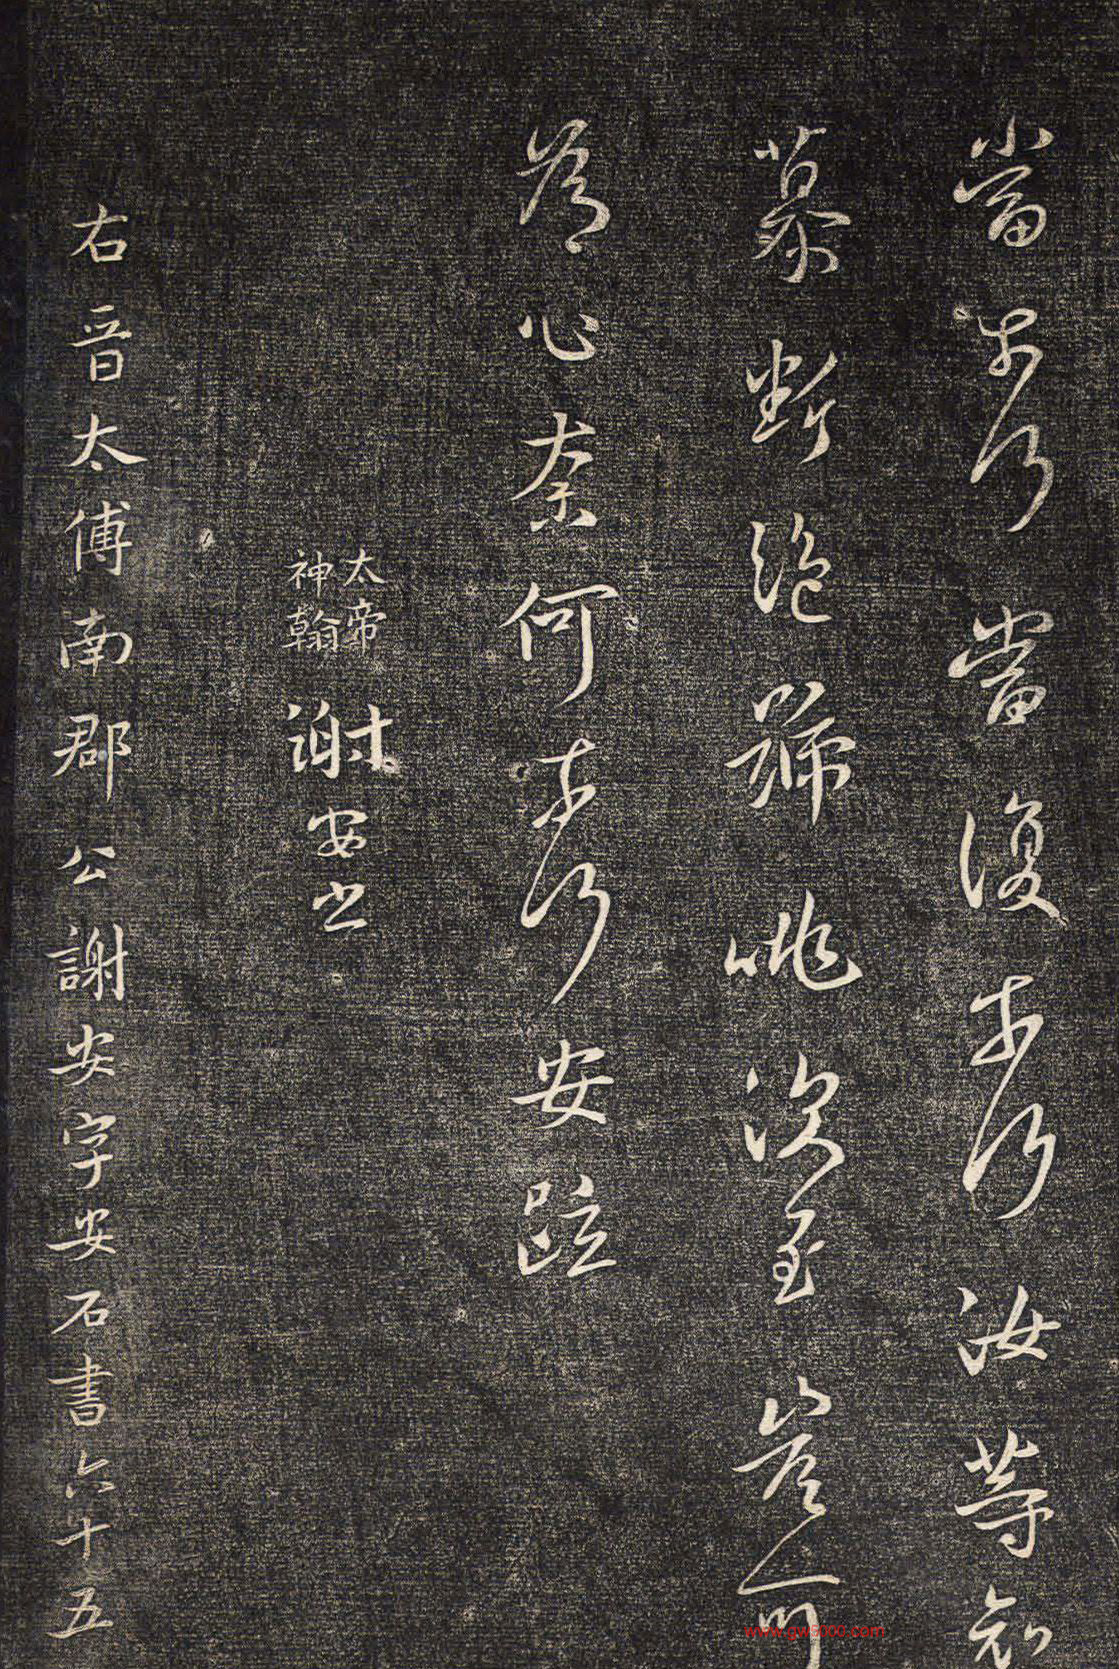 當奈何當復奈何汝等
慕斷絕號咷深至豈可
為心奈何奈何安疏
太帝
神翰
謝安書
右晉太傅南郡公謝安字安石書六十五
www.gw5000.com